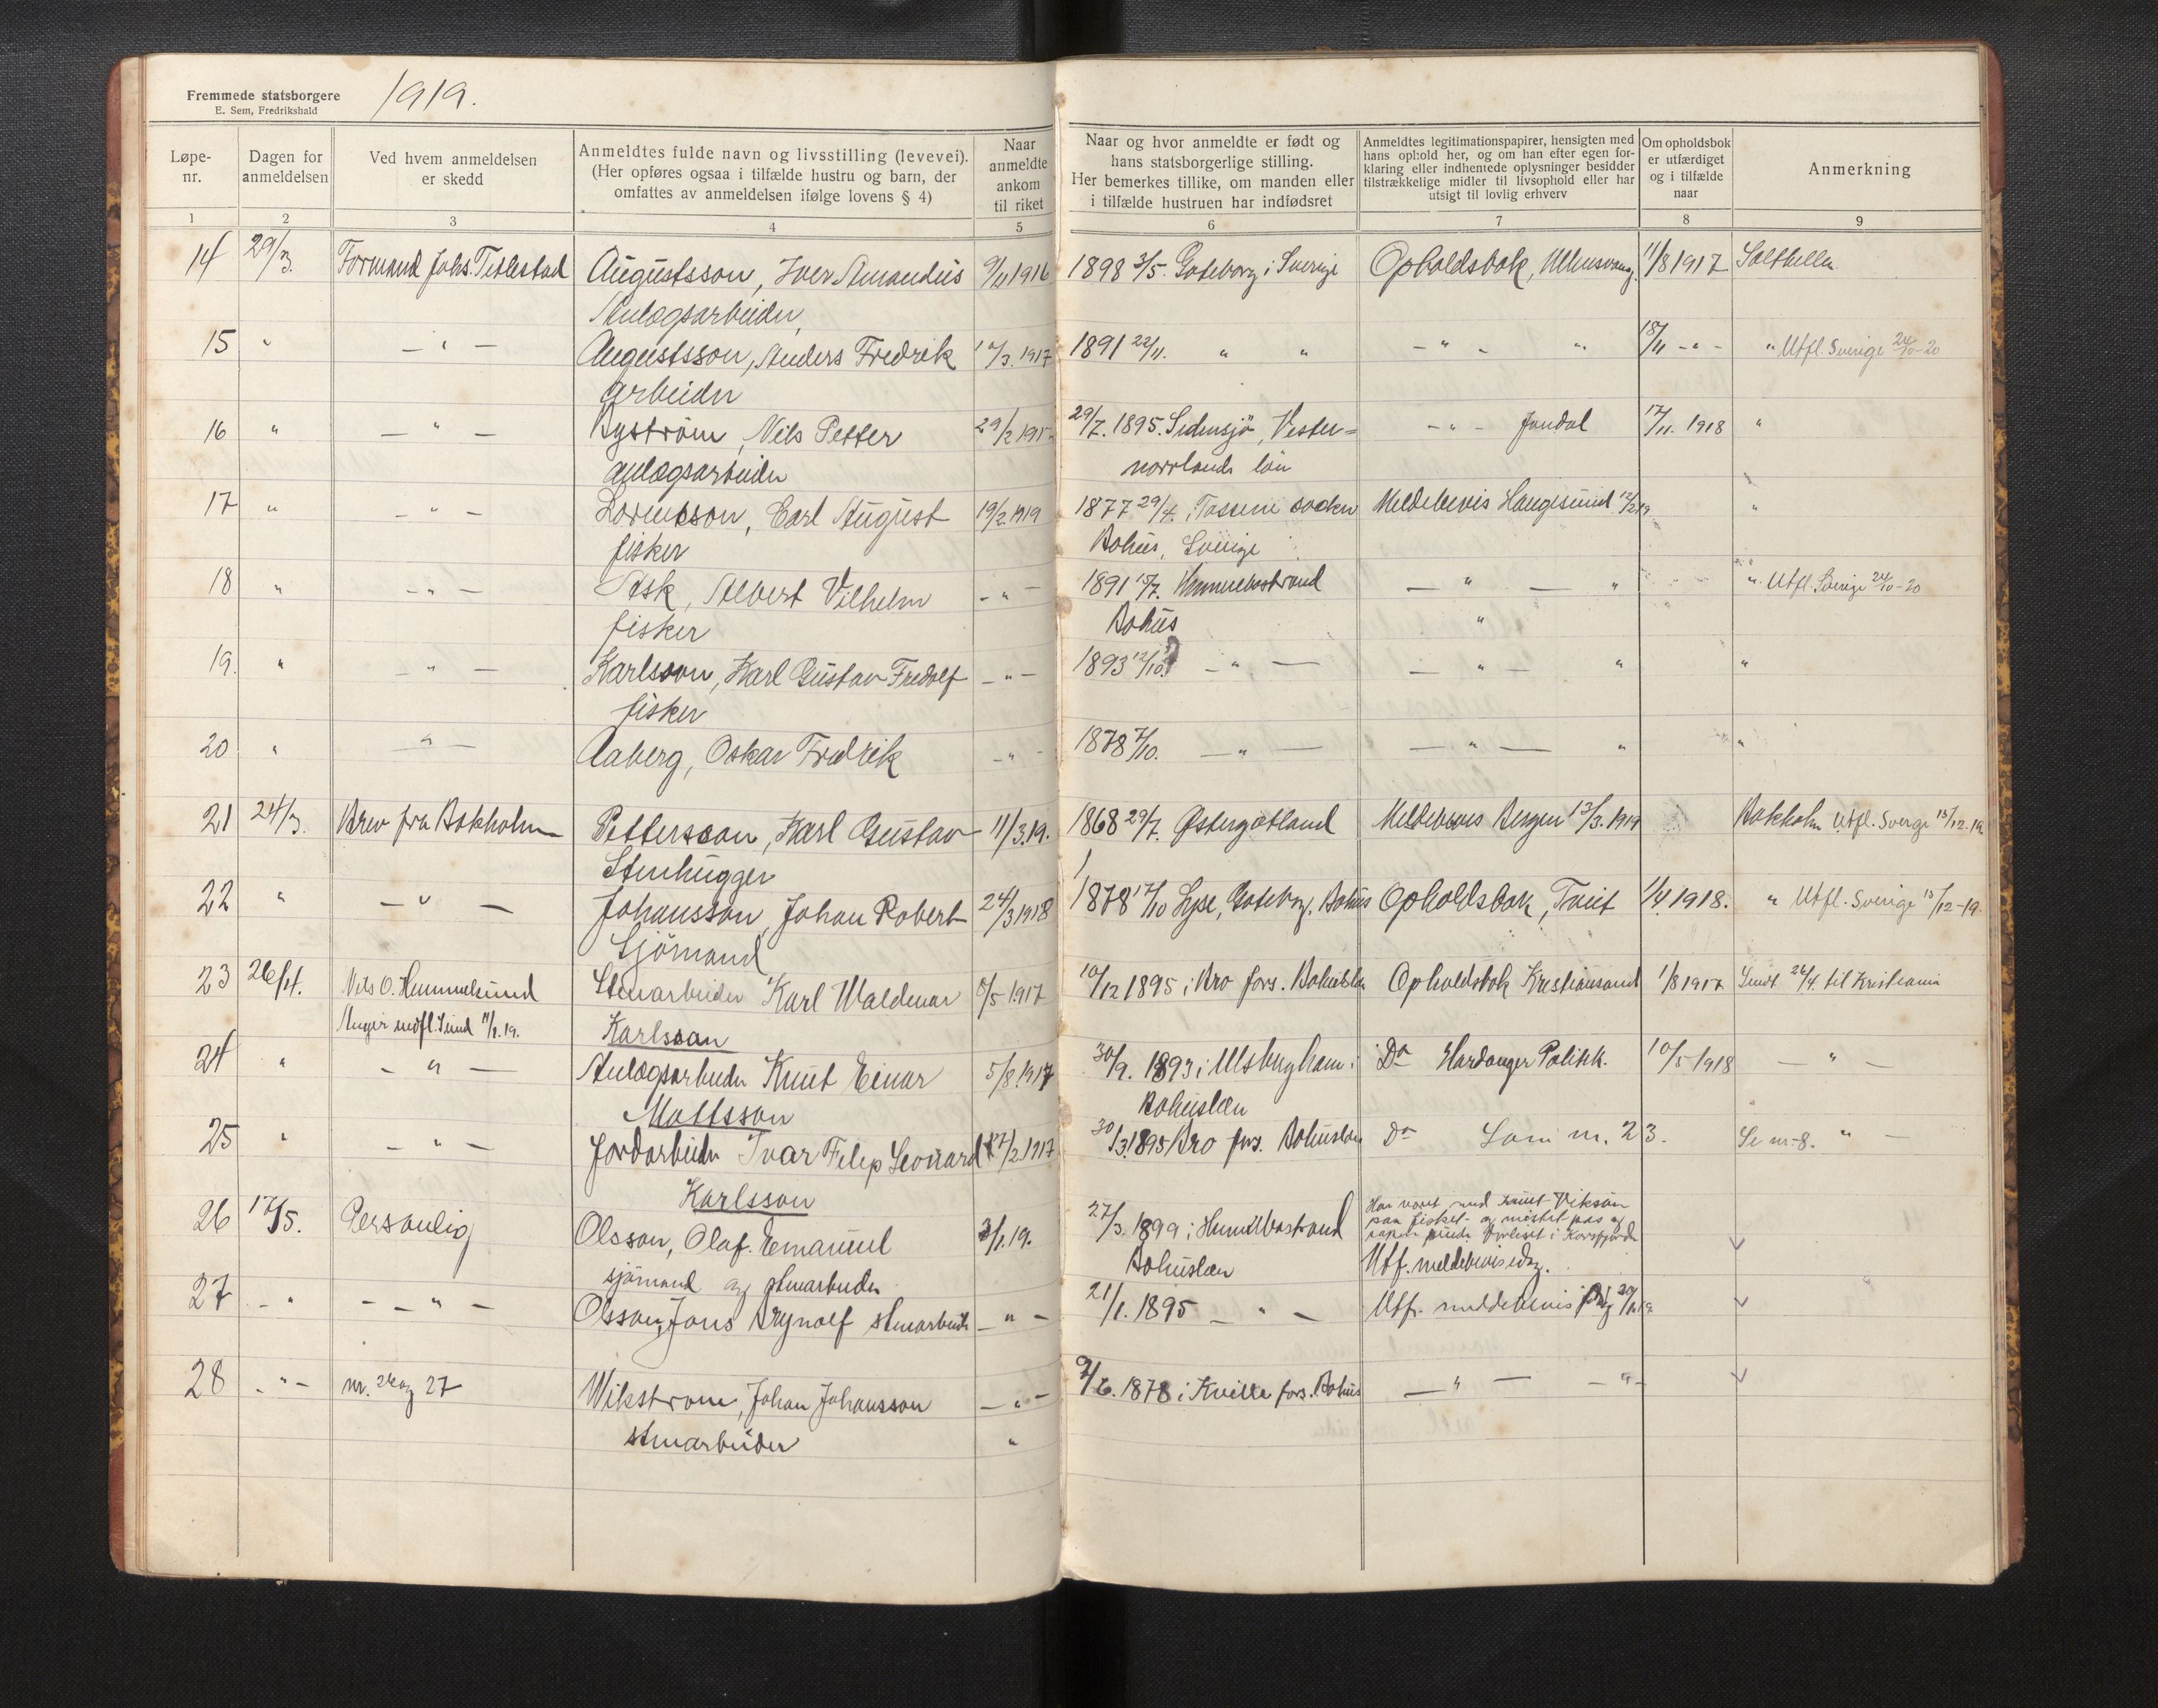 Fremmede statsborgere
E. Sem, Fredrikshald
1919.
Løpe-nr. | Dagen for anmeldelsen | Ved hvem anmeldelsen er skedd | Anmeldtes fulde navn og livsstilling (levevei). (Her opføres ogsaa i tilfælde hustru og barn, der omfattes av anmeldelsen ifølge lovens § 4) | Naar anmeldte ankom til riket | Naar og hvor anmeldte er født og hans statsborgerlige stilling. Her bemerkes tillike, om manden eller i tilfælde hustruen har indfødsret | Anmeldtes legitimationspapirer, hensigten med hans ophold her, og om han efter egen forklaring eller indhentede oplysninger besidder tilstrækkelige midler til livsophold eller har utsigt til lovlig erhverv | Om opholdsbok er utfærdiget og i tilfælde naar | Anmerkning
1 2 3 4 5 6 7 8 9
14 29/3. Formand Johs. Titlestad Augustsson, Iver Amandus 9/11 1916 1898 3/5. Gøteborg i Sverige Opholdsbok, Ullensvang. 11/8 1917 Salthella
Anlægsarbeider,
15 " — " — Augustsson, Anders Fredrik /3. 1917 1891 22/11. " " — " — " 18/11 - " - " Utfl. Sverige 24/10-20
arbeider
16 " — " — Nyström, Nils Petter 29/2 29/7. 1895. Sidensjö, Vester= — " — Jondal 17/11. 1918 "
anlægsarbeider norrlands län
17 " — " — Lorentsson, Carl August 19/2. 1919 1877 29/4. Tossene socken Meldebevis Haugesund 12/2 19 "
fisker Bohus, Sverige
18 " — " — Ask, Albert Vilhelm — " — 1891 15/7. Hunnebostrand — " — " " Utfl. Sverige 24/10-20
fisker Bohus "
19. " — " — Karlsson, Karl Gustav Fredolf — " — 1893 12/10. — " — — " — " "
fisker
20 " — " — Aaberg, Oskar Fredrik — " — 1878 7/10. — " — — " — " "
21 24/3. Brev fra Bokholm Pettersson, Karl Gustav 11/3.19. 1868 29/7. Østergøtland Meldebevis Bergen 13/3. 1919 Bokholm Utfl. Sverge 15/12-19
Stenhugger
22 " — " — Johansson, Johan Robert 24/3 1918 1878 17/10 Lyse, Gøteborg. Bohus Opholdsbok, Tveit 1/4. 1918. " Utfl. Sverige 15/12-19.
Sjömand
23 26/4. Nils O. Hummelsund Stenarbeider Karl Waldemar /5 1917 10/12 1895 i Bro fors. Bohuslen Opholdsbok Kristiansand 1/8 1917 Sendt 26/4. til Kristiania
Anger indfl. Sund 11/1. 19. Karlsson
24 " — " — Anlægsarbeider Knut Einar 5/8. 1917 30/9. 1893 i Do Hardanger Politik. 10/5 1918 — " —
Mattsson Bohuslen
25 " — " — Jordarbeider Ivar Filip Leonard /2. 1917 30/3. 1895 Bro fors. Bohuslen Do Som nr. 23. Se nr. 8. " —
Karlsson
26 17/5. Personlig Olsson, Olaf. Emanuel 3/1. 19. 27/3. 1899 i Hunnebostrand Har været med
sjömand og stenarbeider Bohuslen paa fisket og mistet pas og
papir under forliset i Korsfjorden
Utf. meldebevis idag.
27 — " — " — Olsson, Jons Brynolf stenarbeider — " — 21/1. 1895 — " — Utf. meldebevis
28 — " — nr. 26 og 27 Wikstrom, Johan Johansson — " — 9/6. 1878 i Kville fors. Bohus — " — — " —
stenarbeider "